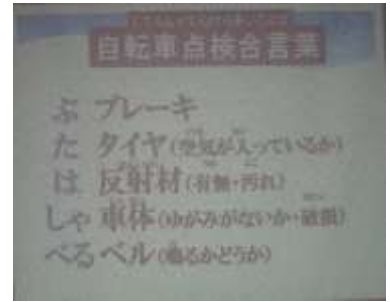 自転車点検合言葉
ぶ ブレーキ
た タイヤ(空気が入っているか)
は 反射材(有無・汚れ)
しゃ 車体(ゆがみがないか・破損)
べる ベル(鳴るかどうか)